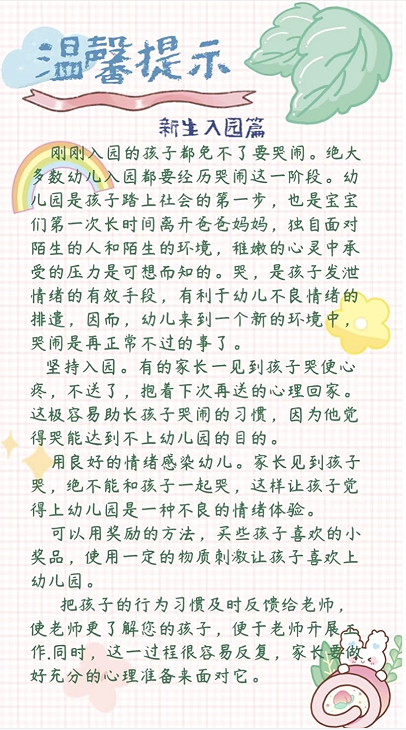 温馨提示
新生入园篇
刚刚入园的孩子都免不了要哭闹。绝大
多数幼儿入园都要经历哭闹这一阶段。幼
儿园是孩子踏上社会的第一步，也是宝宝
们第一次长时间离开爸爸妈妈，独自面对
陌生的人和陌生的环境，稚嫩的心灵中承
受的压力是可想而知的。哭，是孩子发泄
情绪的有效手段，有利于幼儿不良情绪的
排遣，因而，幼儿来到一个新的环境中，
哭闹是再正常不过的事了。
坚持入园。有的家长一见到孩子哭便心
疼，不送了，抱着下次再送的心理回家。
这极容易助长孩子哭闹的习惯，因为他觉
得哭能达到不上幼儿园的目的。
用良好的情绪感染幼儿。家长见到孩子
哭，绝不能和孩子一起哭，这样让孩子觉
得上幼儿园是一种不良的情绪体验。
可以用奖励的方法，买些孩子喜欢的小
奖品，使用一定的物质刺激让孩子喜欢上
幼儿园。
把孩子的行为习惯及时反馈给老师，
使老师更了解您的孩子，便于老师开展工
作.同时，这一过程很容易反复，家长要做
好充分的心理准备来面对它。